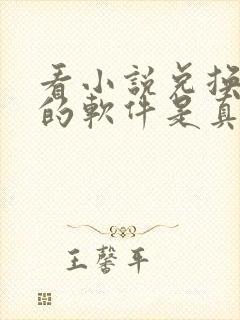 看小說兌換
的軟件是真
王馨平